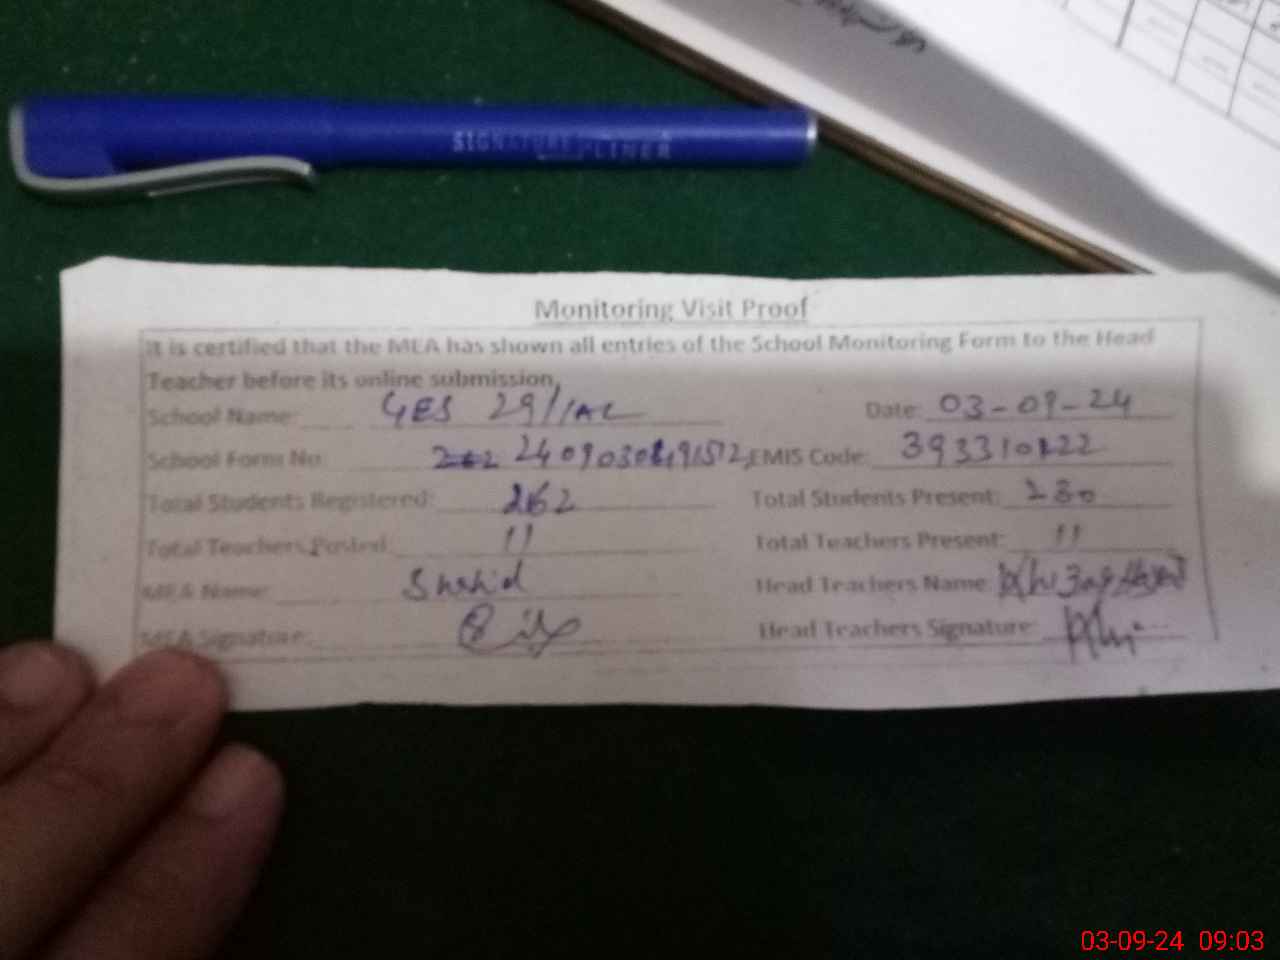 SIGNATURE LINER
Monitoring Visit Proof
It is certified that the MEA has shown all entries of the School Monitoring Form to the Head
Teacher before its online submission,
School Name: GES 29/1AL Date: 03-09-24
School Form No: EMIS Code:
Total Students Registered: 262 Total Students Present: 230
Total Teachers Posted: 11 Total Teachers Present: 11
MEA Name: Shahid Head Teachers Name:
MEA Signature: Head Teachers Signature:
03-09-24 09:03